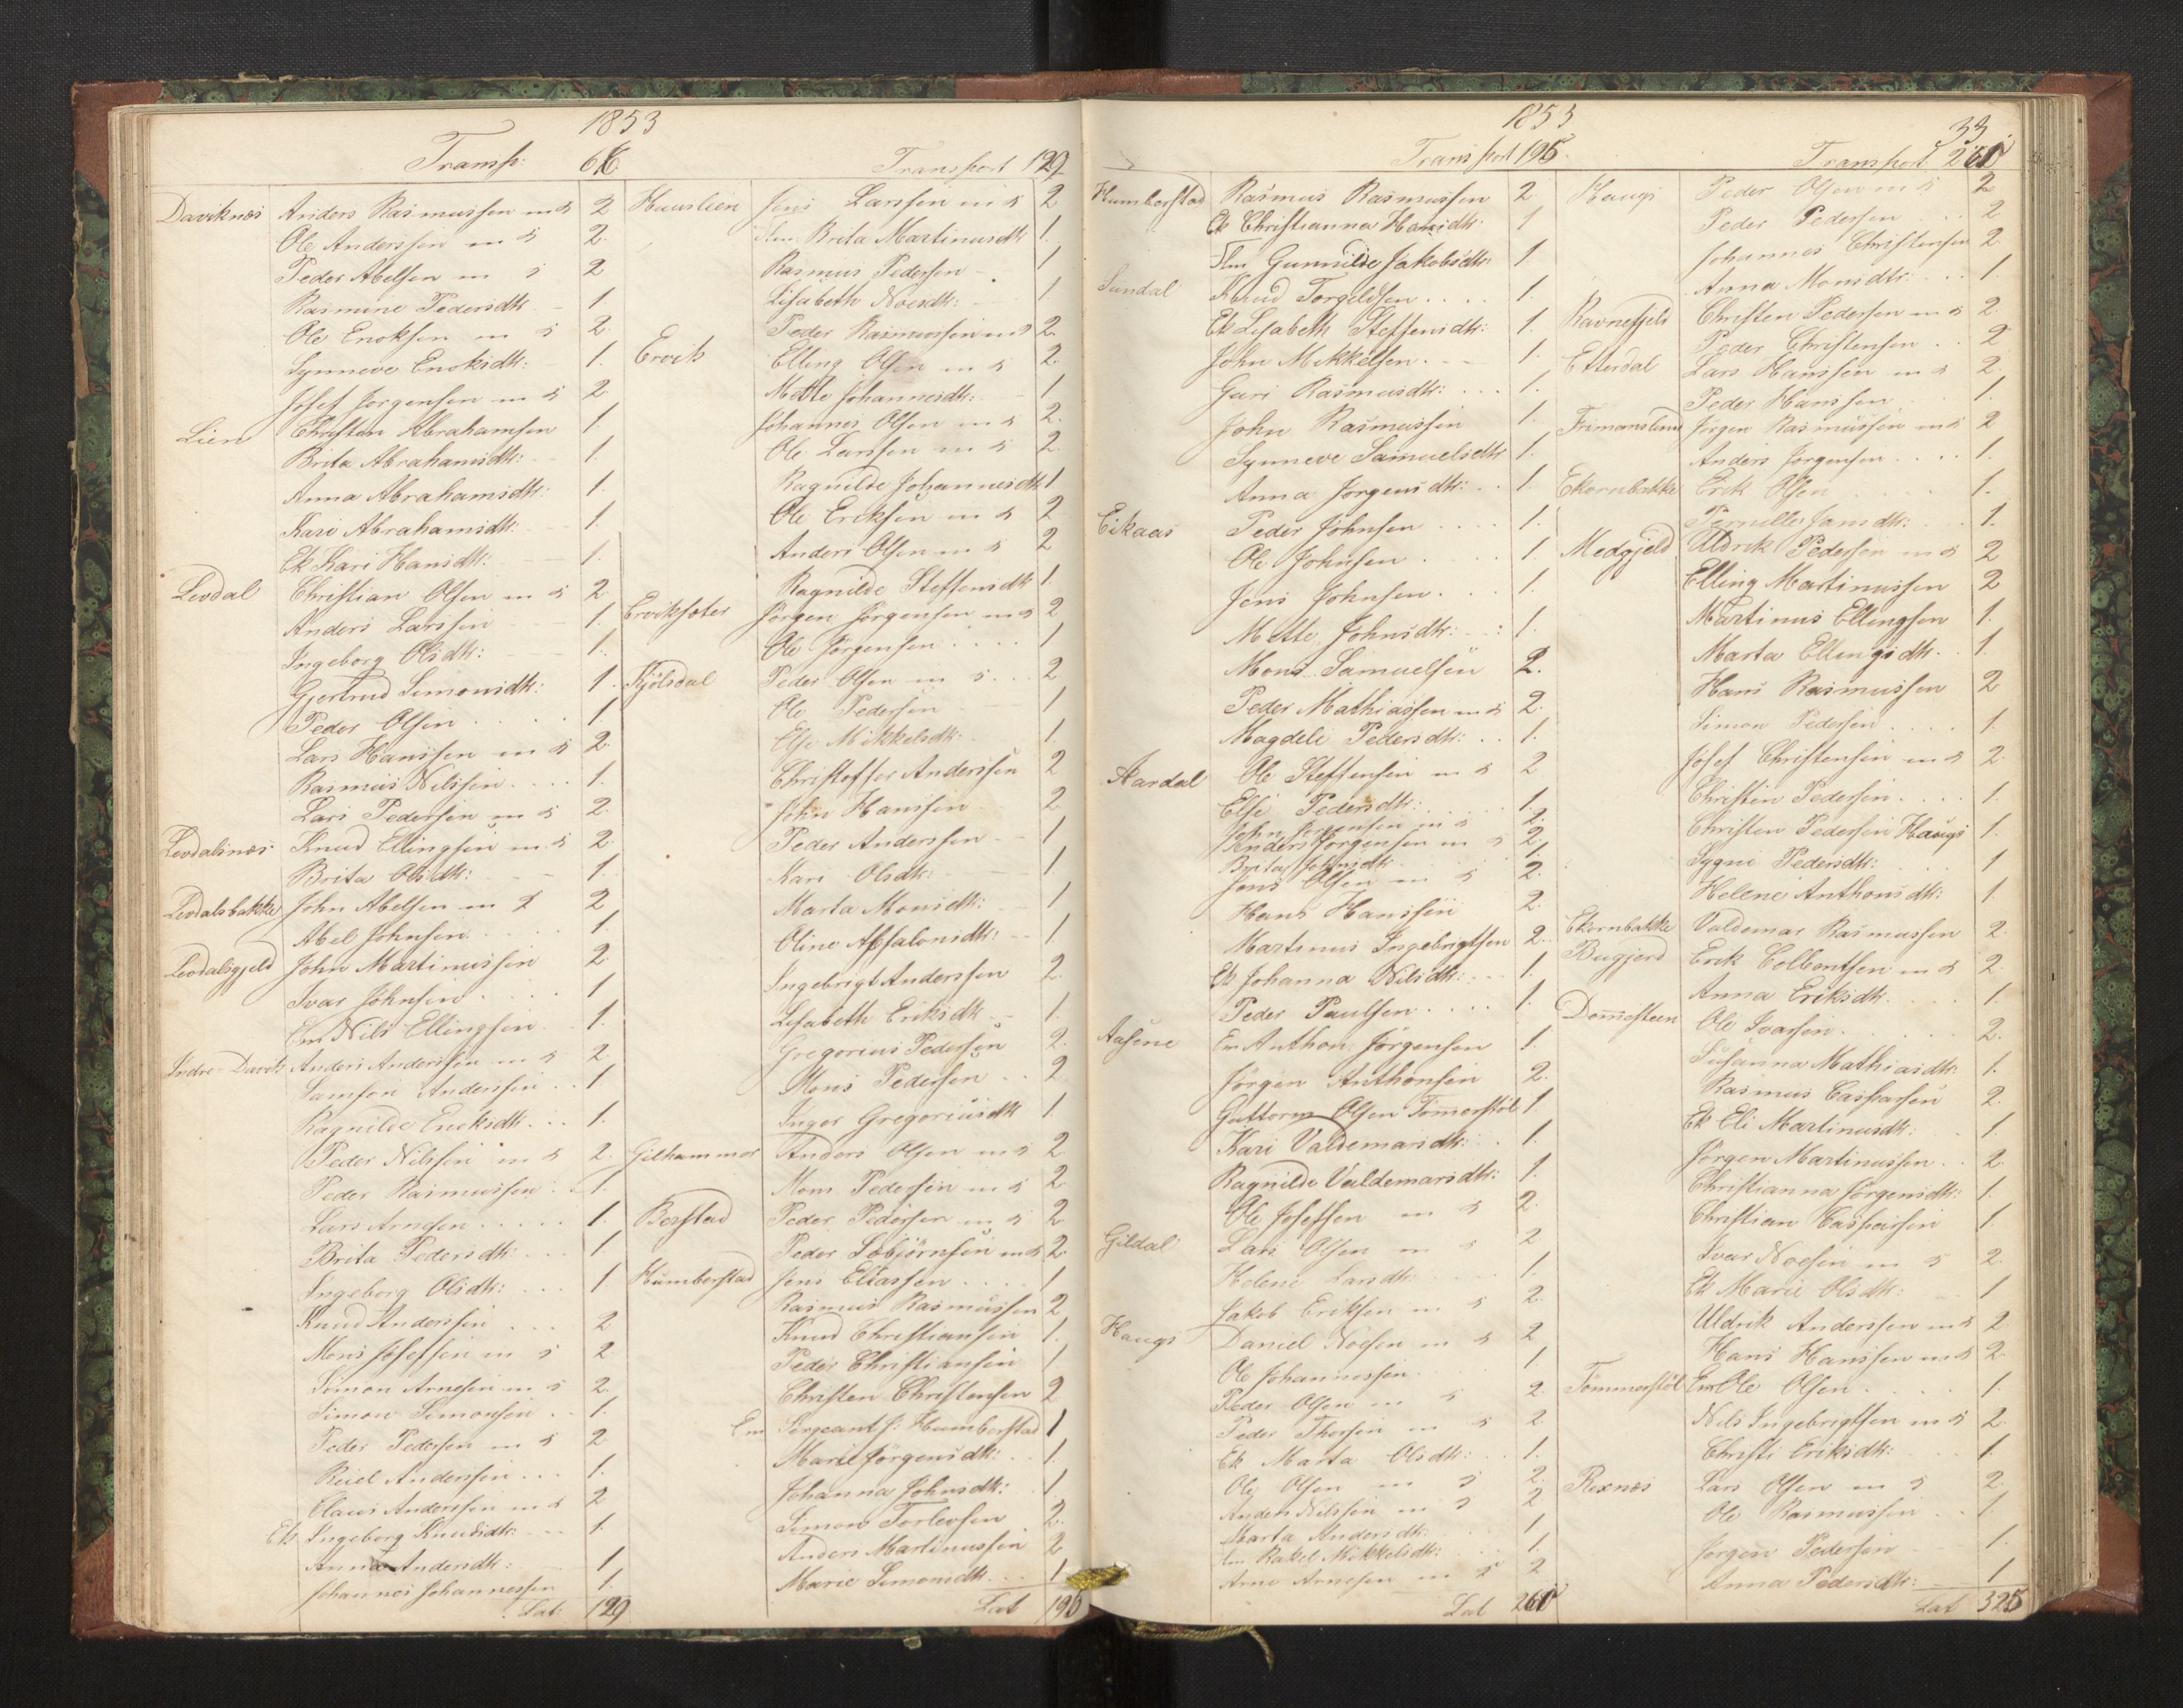 1853
Transp: 66
Daviknæs Anders Rasmussen m K 2
Ole Anderssen m K 2
Peder Abelsen m K 2
Rasmine Pedersdtr 1.
Ole Enoksen m K 2
Synneve Enoksdtr: 1.
Josef Jørgensen m K 2
Lien Christen Abrahamsen 1.
Brita Abrahamsdtr: 1.
Anna Abrahamsdtr: 1.
Kari Abrahamsdtr: 1.
Ek Kari Hansdtr: 1.
Levdal Christian Olsen m K 2
Anders Larssen 1.
Ingeborg Olsdtr: 1.
Gjertrud Simonsdtr: 1.
Peder Olsen 1.
Lars Hanssen m K 2.
Rasmus Nilssen 1.
Lars Pederssen m K 2.
Levdalsnæs Knud Ellingsen m K 2.
Brita Olsdtr: 1.
Levdalsbakke John Abelsen m K 2
Abel Johnsen 1.
Levdalsgjeld John Martinussen 2
Ivar Johnsen 1
Em Nils Ellingsen 1.
Indre-Davik Anders Anderssen m K 2.
Samson Anderssen 1
Ragnilde Enoksdtr. 1.
Peder Nilssen m K 2.
Peder Rasmussen 1.
Lars Arnesen 1.
Brita Pedersdtr: 1
Ingeborg Olsdtr: 1
Knud Anderssen 2
Mons Josefsen m K 2
Simon Arnesen m K 2.
Simon Simonsen 1.
Peder Pedersen m K 2
Reiel Anderssen 1.
Claus Anderssen m K 2
Ek Ingeborg Knudsdtr: 1.
Anna Andersdtr: 1
Johannes Johannessen 1.
Lat: 129
Transport 129
Huuslien Jens Larssen m K 2
Em Brita Martinusdtr 1.
Rasmus Pedersen 1
Lisabeth Noesdtr: 1.
Peder Rasmussen m K 2
Ervik Elling Olsen m K 2.
Mette Johannesdtr: 1
Johannes Olsen m K 2.
Ole Larssen m K 2.
Ragnilde Johannesdtr 1
Ole Eriksen m K 2
Anders Olsen m K 2
Ragnilde Steffensdtr 1.
Erviksæter Jørgen Jørgensen m K 2
Ole Jørgensen 1
Kjølsdal Peder Olsen m K 2
Ole Pedersen 1
Else Mikkelsdtr: 1
Christoffer Anderssen 2
John Hanssen 2
Peder Anderssen 1
Kari Olsdtr: 1
Marta Monsdtr: 1
Oline Absalonsdtr: 1.
Ingebrigt Anderssen 2.
Lisabeth Eriksdtr 1.
Gregorius Pedersen 2.
Mons Pedersen 2
Inger Gregoriusdtr 1.
Gilhammer Anders Olsen m K 2
Mons Pedersen m K 2
Berstad Peder Pedersen m K 2
Peder Sebjørnsen m K 2.
Humberstad Jens Eliassen 1
Rasmus Rasmussen 2
Knud Christiansen 1.
Peder Christiansen 1
Christen Christensen 2
Em Sergeant J: Humberstad 1
Marie Jørgensdtr: 1.
Johanna Johnsdtr: 1
Simon Torlevsen 2.
Anders Martinussen 2
Marie Simonsdtr 1
Lat 196
1853
33
Transport 196.
Humberstad Rasmus Rasmussen 2.
Ek Christianna Hansdtr: 1
Em Gunnilde Jakobsdtr: 1
Sundal Knud Torgildsen 1.
Ek Lisabeth Steffensdtr: 1.
John Mikkelsen 1.
Guri Rasmusdtr: 1.
John Rasmussen 1.
Synneve Samuelsdtr 1.
Anna Jørgensdtr: 1.
Eikaas Peder Johnsen 1.
Ole Johnsen 1.
Jens Johnsen 1.
Mette Johnsdtr: 1.
Mons Samuelsen 2.
Peder Mathiassen m K 2.
Magdeli Pedersdtr: 1.
Aardal Ole Steffensen m K 2
Else Pedersdtr: 1.
John Jørgensen m K 2.
Anders Jørgensen m K 2
Brita Johnsdtr 1.
Jens Olsen m K 2.
Hans Hanssen 2.
Martinus Ingebrigtsen 2
Ek Johanna Nilsdtr: 1.
Peder Paulsen 1.
Aasene Em Anthon Jørgensen 1.
Jørgen Anthonsen 2.
Guttorm Olsen Tømmerstøl 1
Kari Valdemarsdtr: 1.
Ragnilde Valdemarsdtr: 1.
Ole Josefsen m K 2.
Gildal Lars Olsen m K 2
Helene Larsdtr: 1.
Jakob Eriksen m K 2.
Haugs Daniel Noesen m K 2
Ole Johannessen 1
Peder Olsen m K 2.
Peder Thorsen m K 2.
Ek Marta Olsdtr: 1.
Ole Olsen m K 2.
Anders Nilssen m K 2
Marta Andersdtr: 1
Em Rakel Mikkelsdtr: 1.
Arne Arnesen m K 2
Lat 261
Transport 261
Haugs Peder Olsen m K 2
Peder Pedersen 2
Johannes Christensen 2.
Anna Monsdtr: 1
Ravnefjeld Christen Pedersen m K 2
Peder Christensen 2
Etterdal Lars Hanssen m K 2
Peder Hanssen 1.
Frimanslund Jørgen Rasmussen m K 2
Anders Jørgensen 1.
Ekornbakke Erik Olsen 1.
Pernille Jansdtr: 1.
Medgjeld Uldrik Pedersen m K 2
Elling Martinussen 2
Martinus Ellingsen 1.
Marta Ellingsdtr. 1.
Hans Rasmussen 2
Simon Pedersen 1.
Josef Christensen m K 2.
Christen Pedersen 1.
Christen Pedersen Haugs 1.
Sygni Pedersdtr: 1
Helene Anthonsdtr: 1.
Ekornbakke Valdemar Rasmussen 2.
Bugjerd Erik Colbentsen m K 2.
Anna Eriksdtr. 1.
Domesteen Ole Ivarsen 2.
Susanna Mathiasdtr: 1.
Rasmus Casparsen 2.
Ek Eli Martinusdtr: 1.
Jørgen Martinussen 2.
Christianna Jørgensdtr: 1.
Christian Casparsen 1.
Ivar Noesen m K 2.
Ek Marie Olsdtr: 1
Uldrik Anderssen m K 2.
Hans Hanssen m K 2.
Tømmerstøl Em Ole Olsen 1.
Nils Ingebrigtsen m K 2.
Christi Eriksdtr: 1.
Rexnæs Lars Olsen m K 2.
Ole Rasmussen 1
Jørgen Pedersen 1.
Anna Pedersdtr: 1
Lat 325